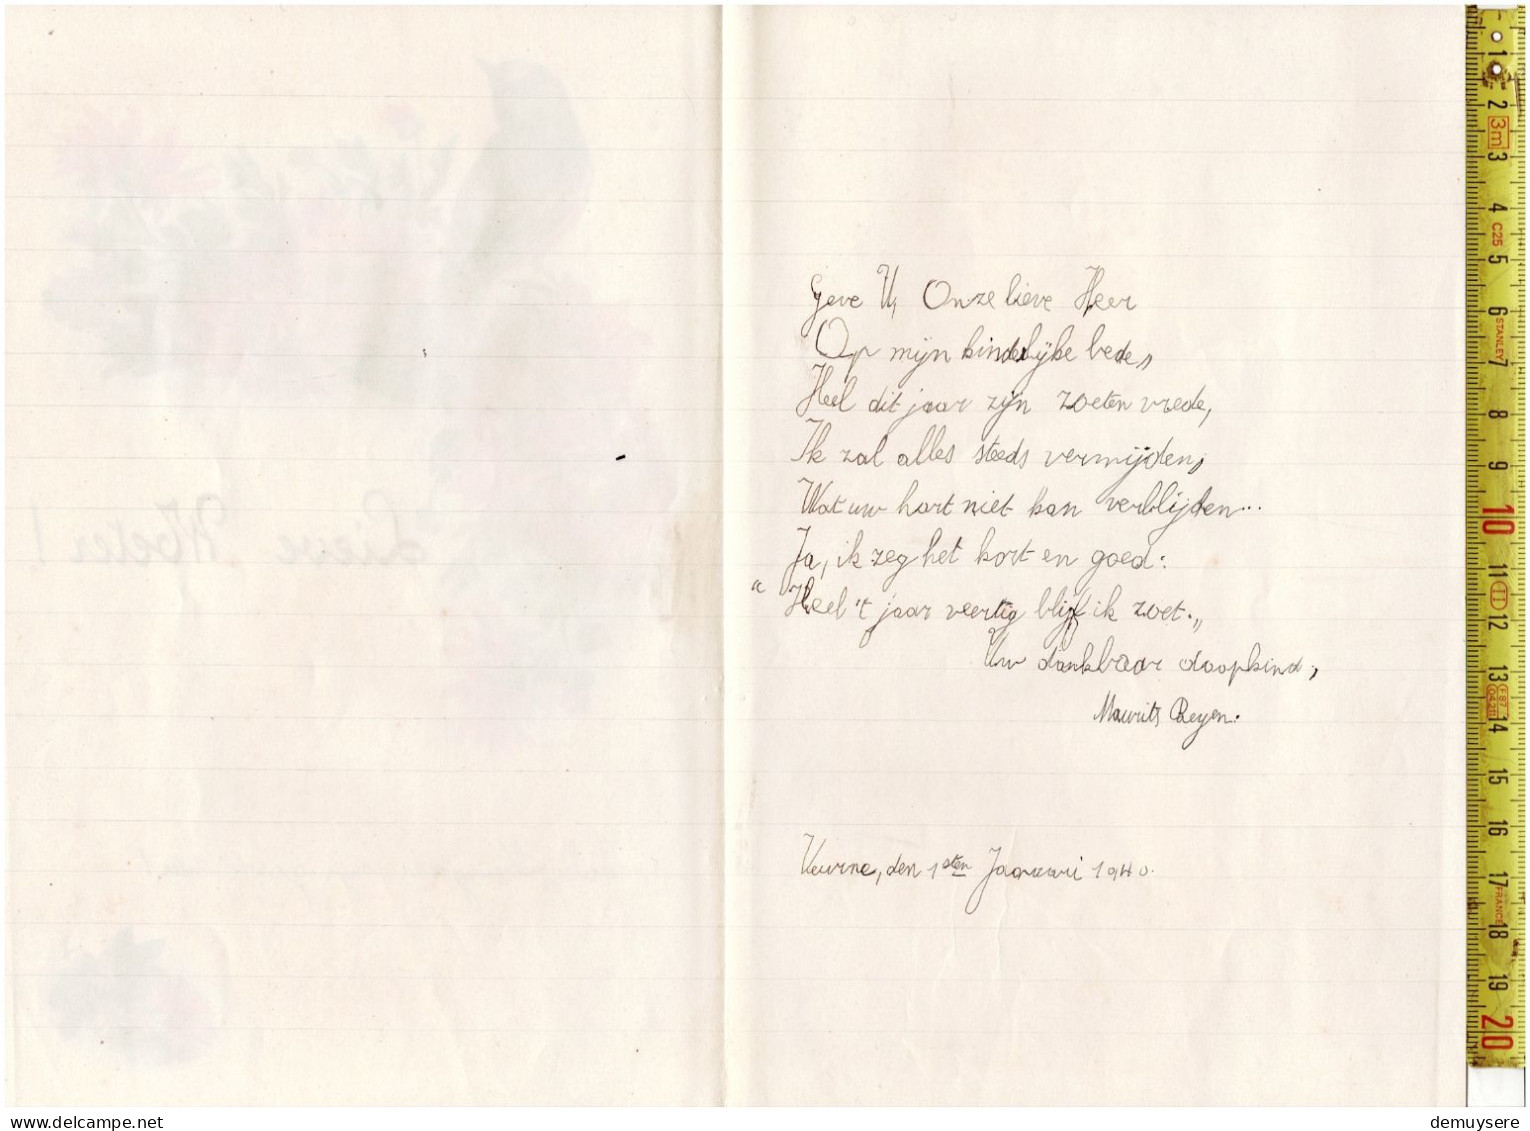 Lieve Meter!
Geve U, Onze lieve Heer
Op mijn kinderlijke bede,
Heel dit jaar zijn zoeten vrede,
Ik zal alles steeds vermijden,
Wat uw hart niet kan verblijden...
Ja, ik zeg het kort en goed:
"Heel 't jaar veertig blijf ik zoet.„
Uw dankbaar doopkind,
Maurits Reyen.
Veurne, den 1sten Januari 1940.
1
2
3m
3
4
C25
5
6
STANLEY
7
8
9
10
11
II
12
13
14
15
16
17
FRANCE
18
19
20
demuysere